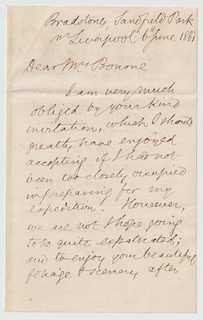 Bradstones, Sandfield Park
Nr. Liverpool 6th June 188
Dear Mrs Bourne
I am very much
obliged by your kind
invitation, which I should
greatly have enjoyed
accepting if I had not
been too closely occupied
in preparing for my
expedition. However,
we are not I hope going
to be quite expatriated;
and to enjoy your beautiful
foliage & scenery after